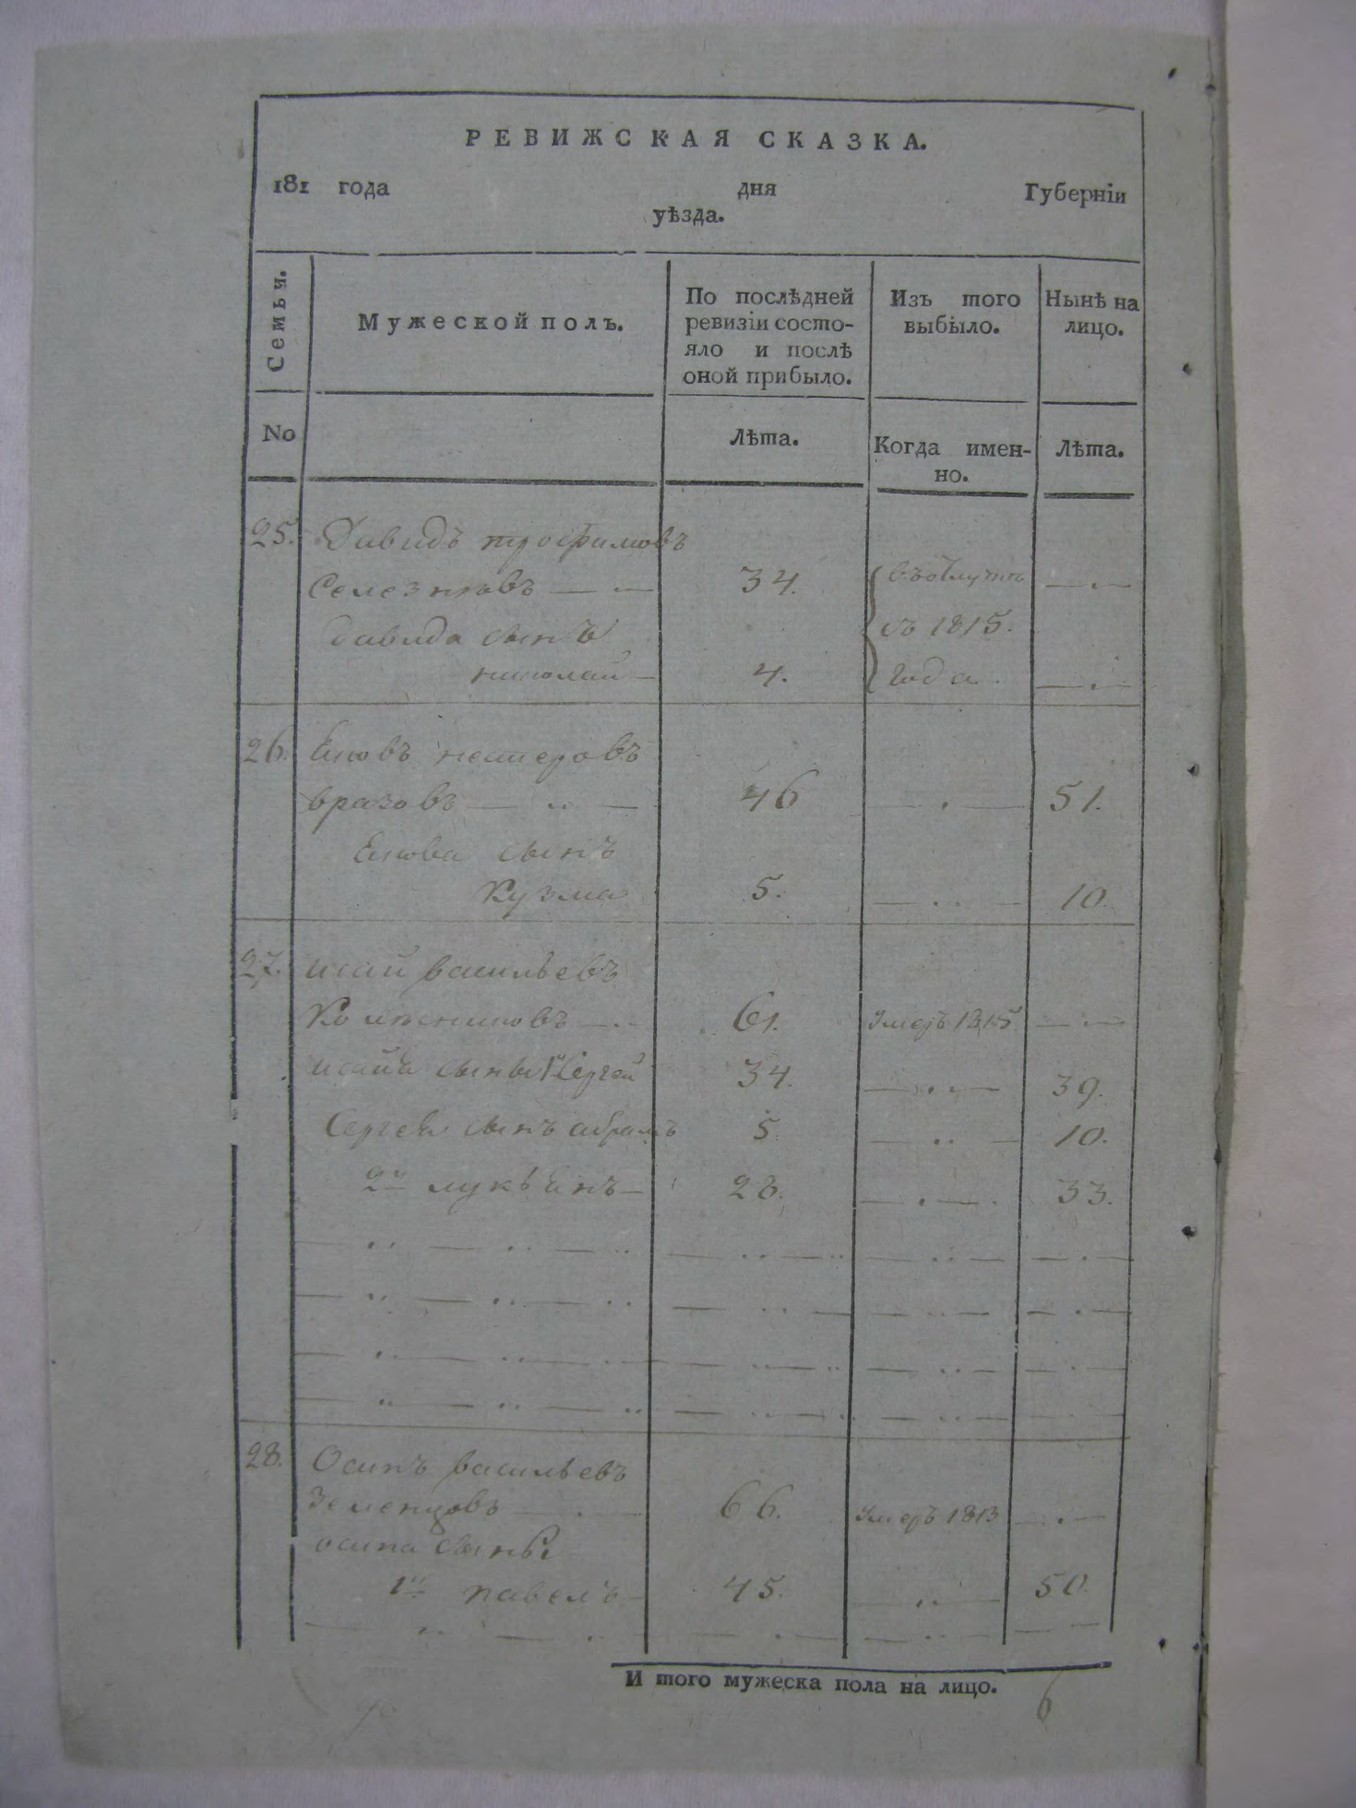 РЕВИЖСКАЯ СКАЗКА.
181 года дня Губернїи
уѣзда.
Семьи.
Мужеской полъ.
По послѣдней ревизїи состо-яло и послѣ оной прибыло.
Изъ того выбыло.
Нынѣ на лицо.
No
Лѣта.
Когда имен-но.
Лѣта.
25. Давидъ трофимовъ
Селезнѣвъ 34. въ отлучкѣ
давида сынъ съ 1815.
николай 4. года.
26. нестеровъ
46 51.
сынъ
Кузма 5. 10.
27. исай васильевъ
61. умеръ 1815
исая сыны 1й Сергей 34. 39.
Сергея сынъ абрамъ 5 10.
2й лукьянъ 28. 33.
28. Осипъ васильевъ
Земенцовъ 66. умеръ 1813
осипа сыны
1й павелъ 45. 50.
И того мужеска пола на лицо. 6